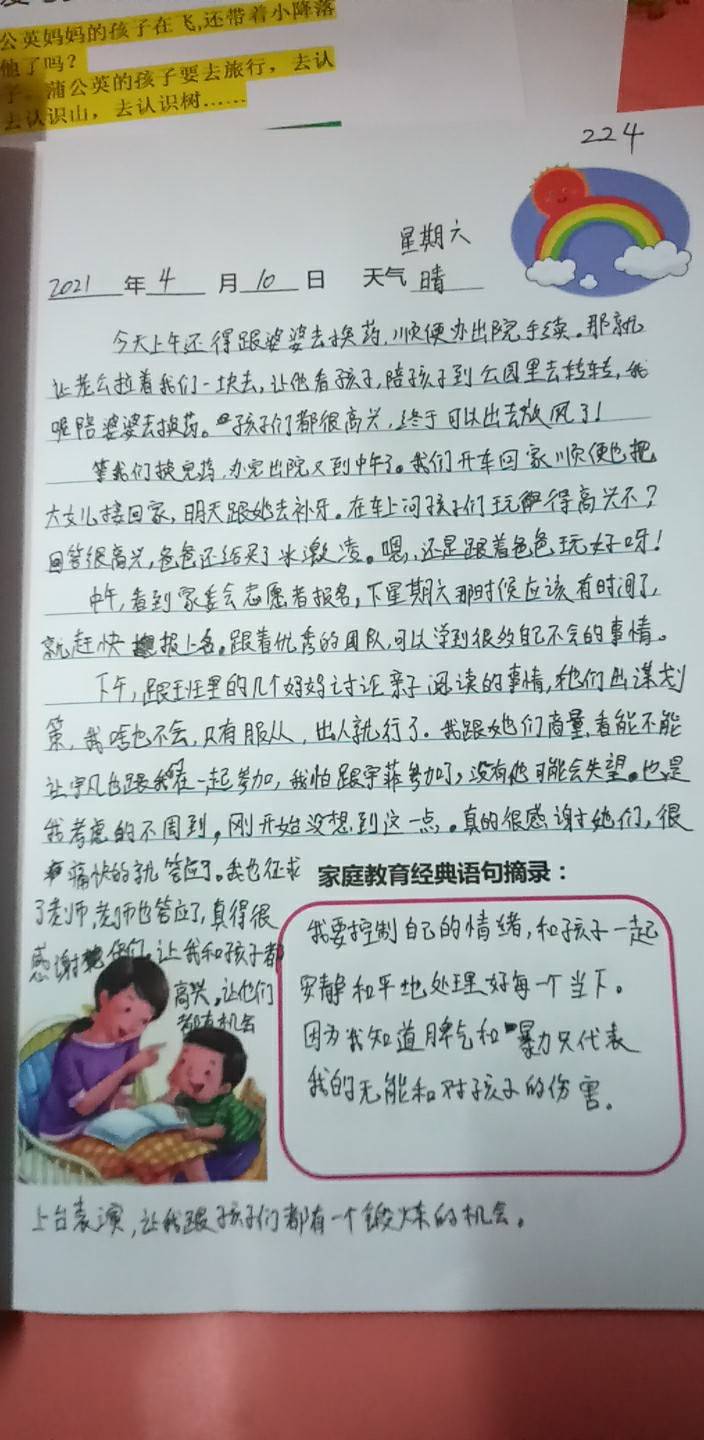 公英妈妈的孩子在飞,还带着小降落
他了吗?
子。蒲公英的孩子要去旅行，去认
去认识山，去认识树……
224
星期六
2021年4月10日 天气晴
今天上午还得跟婆婆去换药,顺便办出院手续。那就
让老公拉着我们一块去,让他看孩子,陪孩子到公园里去转转,我
呢陪婆婆去换药。孩子们都很高兴,终于可以出去放风了!
等我们换完药,办完出院又到中午了。我们开车回家顺便也把
大女儿接回家,明天跟她去补牙。在车上问孩子们玩得高兴不?
回答很高兴,爸爸还给买了冰激凌。嗯,还是跟着爸爸玩好呀!
中午,看到家委会志愿者报名,下星期六那时候应该有时间了,
就赶快报上名。跟着优秀的团队,可以学到很多自己不会的事情。
下午,跟班里的几个妈妈讨论亲子阅读的事情,他们出谋划
策,我啥也不会,只有服从,出人就行了。我跟她们商量,看能不能
让宇凡也跟我们在一起参加,我怕跟宇菲参加了,没有他可能会失望。也是
我考虑的不周到,刚开始没想到这一点。真的很感谢她们,很
痛快的就答应了。我也征求
了老师,老师也答应了,真得很
感谢他们,让我和孩子都
高兴,让他们
都有机会
上台表演,让我跟孩子们都有一个锻炼的机会。
家庭教育经典语句摘录：
我要控制自己的情绪,和孩子一起
安静和平地处理好每一个当下。
因为我知道脾气和暴力只代表
我的无能和对孩子的伤害。